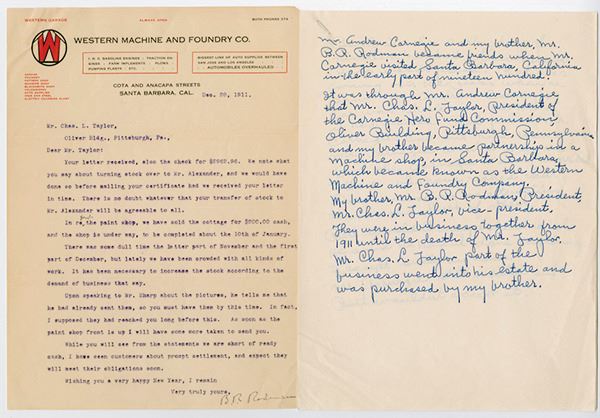 WESTERN GARAGE
ALWAYS OPEN
BOTH PHONES 274
W
WESTERN MACHINE AND FOUNDRY CO.
I. H. C. GASOLINE ENGINES : TRACTION EN-
GINES : FARM IMPLEMENTS : PLOWS
PUMPING PLANTS : ETC.
BIGGEST LINE OF AUTO SUPPLIES BETWEEN
SAN JOSE AND LOS ANGELES
AUTOMOBILES OVERHAULED
COTA AND ANACAPA STREETS
SANTA BARBARA, CAL.
Dec. 28, 1911.
Mr. Chas. L. Taylor,
Oliver Bldg., Pittsburgh, Pa.,
Dear Mr. Taylor:
Your letter received, also the check for $2962.96. We note what
you say about turning stock over to Mr. Alexander, and we would have
done so before mailing your certificate had we received your letter
in time. There is no doubt whatever that your transfer of stock to
Mr. Alexander will be agreeable to all.
In the paint shop, we have sold the cottage for $200.00 cash,
and the shop is under way, to be completed about the 10th of January.
There was some dull time the latter part of November and the first
part of December, but lately we have been crowded with all kinds of
work. It has been necessary to increase the stock according to the
demand of business that way.
Upon speaking to Mr. Sharp about the pictures, he tells me that
he had already sent them, so you must have them by this time. In fact,
I supposed they had reached you long before this. As soon as the
paint shop front is up I will have some more taken to send you.
While you will see from the statements we are short of ready
cash, I have seen customers about prompt settlement, and expect they
will meet their obligations soon.
Wishing you a very happy New Year, I remain
Very truly yours,
B.R. Rodman
Mr. Andrew Carnegie and my brother, Mr.
B.R. Rodman became freinds when Mr.
Carnegie visited Santa Barbara, California
in the early part of nineteen hundred.
It was through Mr. Andrew Carnegie
that Mr. Chas. L. Taylor, President of
the Carnegie Hero Fund Commission,
Oliver Building, Pittsburgh, Pennsylvania
and my brother became partnership in a
Machine shop, in Santa Barbara,
which became known as the Western
Machine and Foundry Company.
My brother, Mr. B.R. Rodman, President,
Mr. Chas. L. Taylor, vice-president.
They were in business together from
1911 until the death of Mr. Taylor.
Mr. Chas. L Taylor part of the
business went into his estate and
was purchased by my brother.